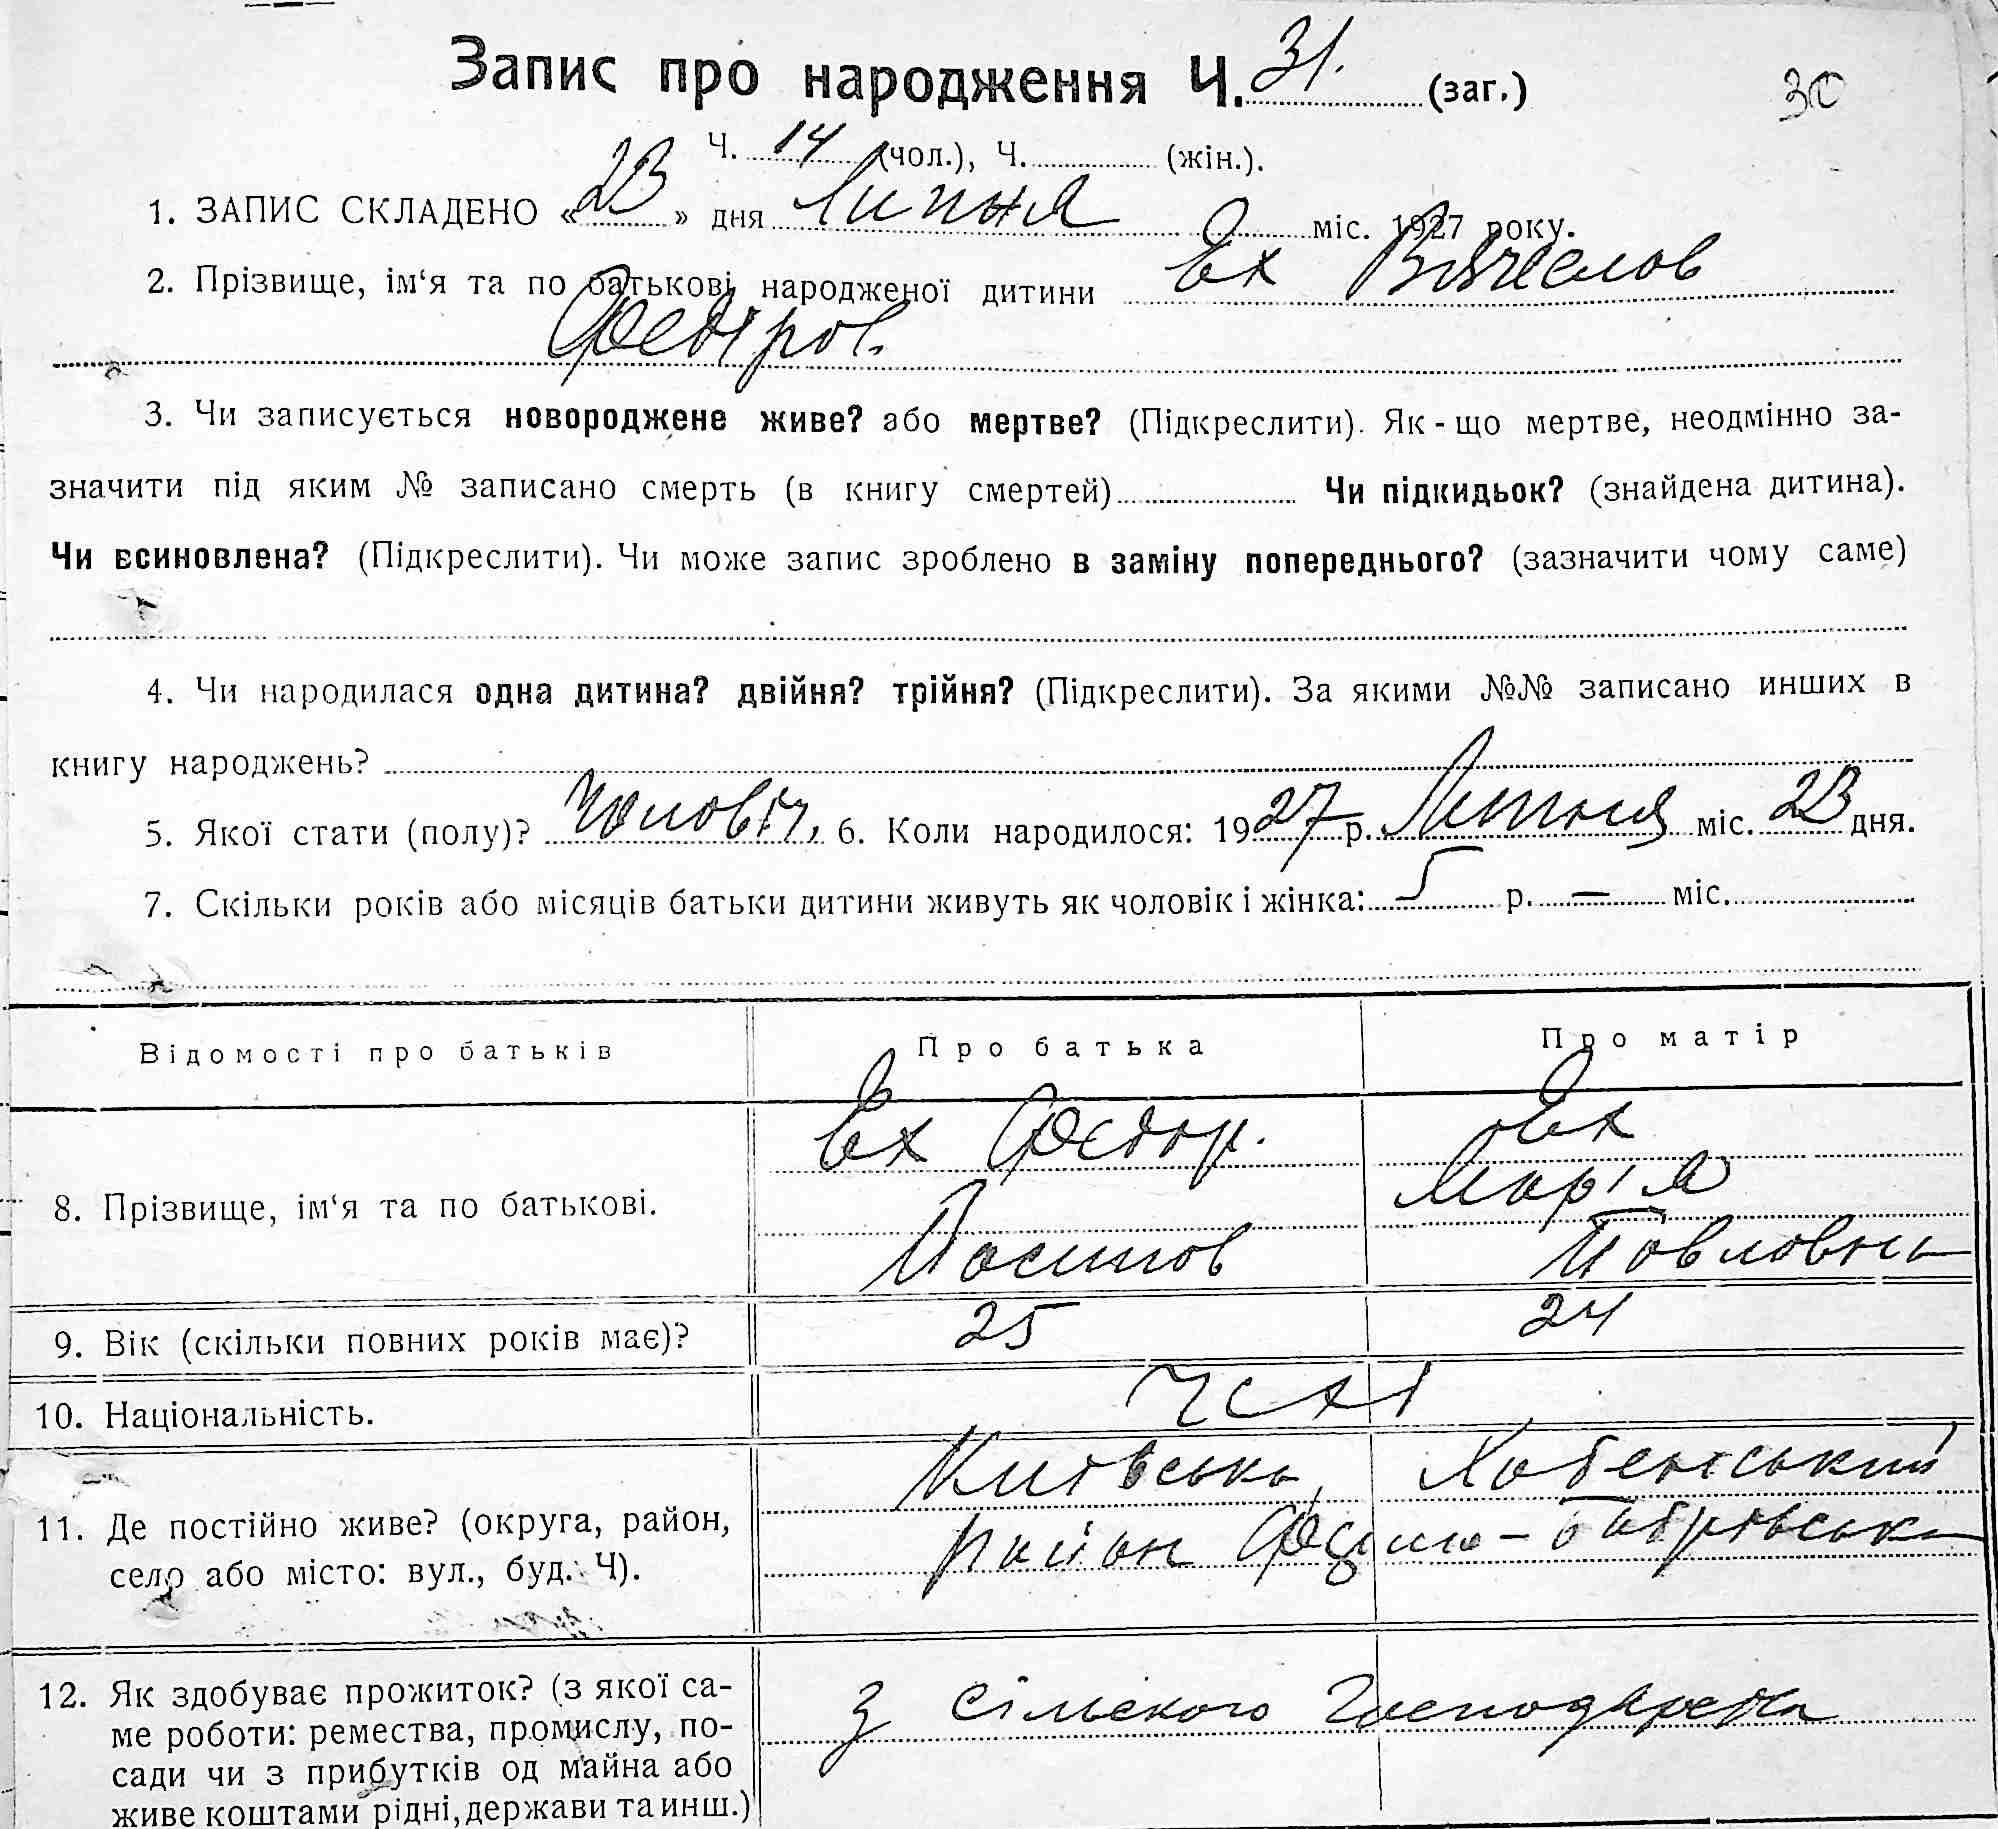 Запис про народження Ч. 31. (заг.) 30
Ч. 14 (чол.), Ч. (жін.).
1. ЗАПИС СКЛАДЕНО «23» дня Липня міс. 1927 року.
2. Прізвище, ім‘я та по батькові народженої дитини Ех Вячеслов
Федіров.
3. Чи записується новороджене живе? або мертве? (Підкреслити). Як-що мертве, неодмінно за-
значити під яким № записано смерть (в книгу смертей) Чи підкидьок? (знайдена дитина).
Чи всиновлена? (Підкреслити). Чи може запис зроблено в заміну попереднього? (зазначити чому саме)
4. Чи народилася одна дитина? двійня? трійня? (Підкреслити). За якими №№ записано инших в
книгу народжень?
5. Якої стати (полу)? Чоловіч. 6. Коли народилося: 1927 р. Липня міс. 23 дня.
7. Скільки років або місяців батьки дитини живуть як чоловік і жінка: 5 р. — міс.
Відомості про батьків Про батька Про матір
Ех Федір. Ех
8. Прізвище, ім‘я та по батькові. Марія
Йосипов Павловна
9. Вік (скільки повних років має)? 25 24
10. Національність. Чехі
Київська, Хабенський
11. Де постійно живе? (округа, район, район
село або місто: вул., буд. Ч).
12. Як здобуває прожиток? (з якої са- з сільского господарства
ме роботи: ремества, промислу, по-
сади чи з прибутків од майна або
живе коштами рідні, держави та инш.)